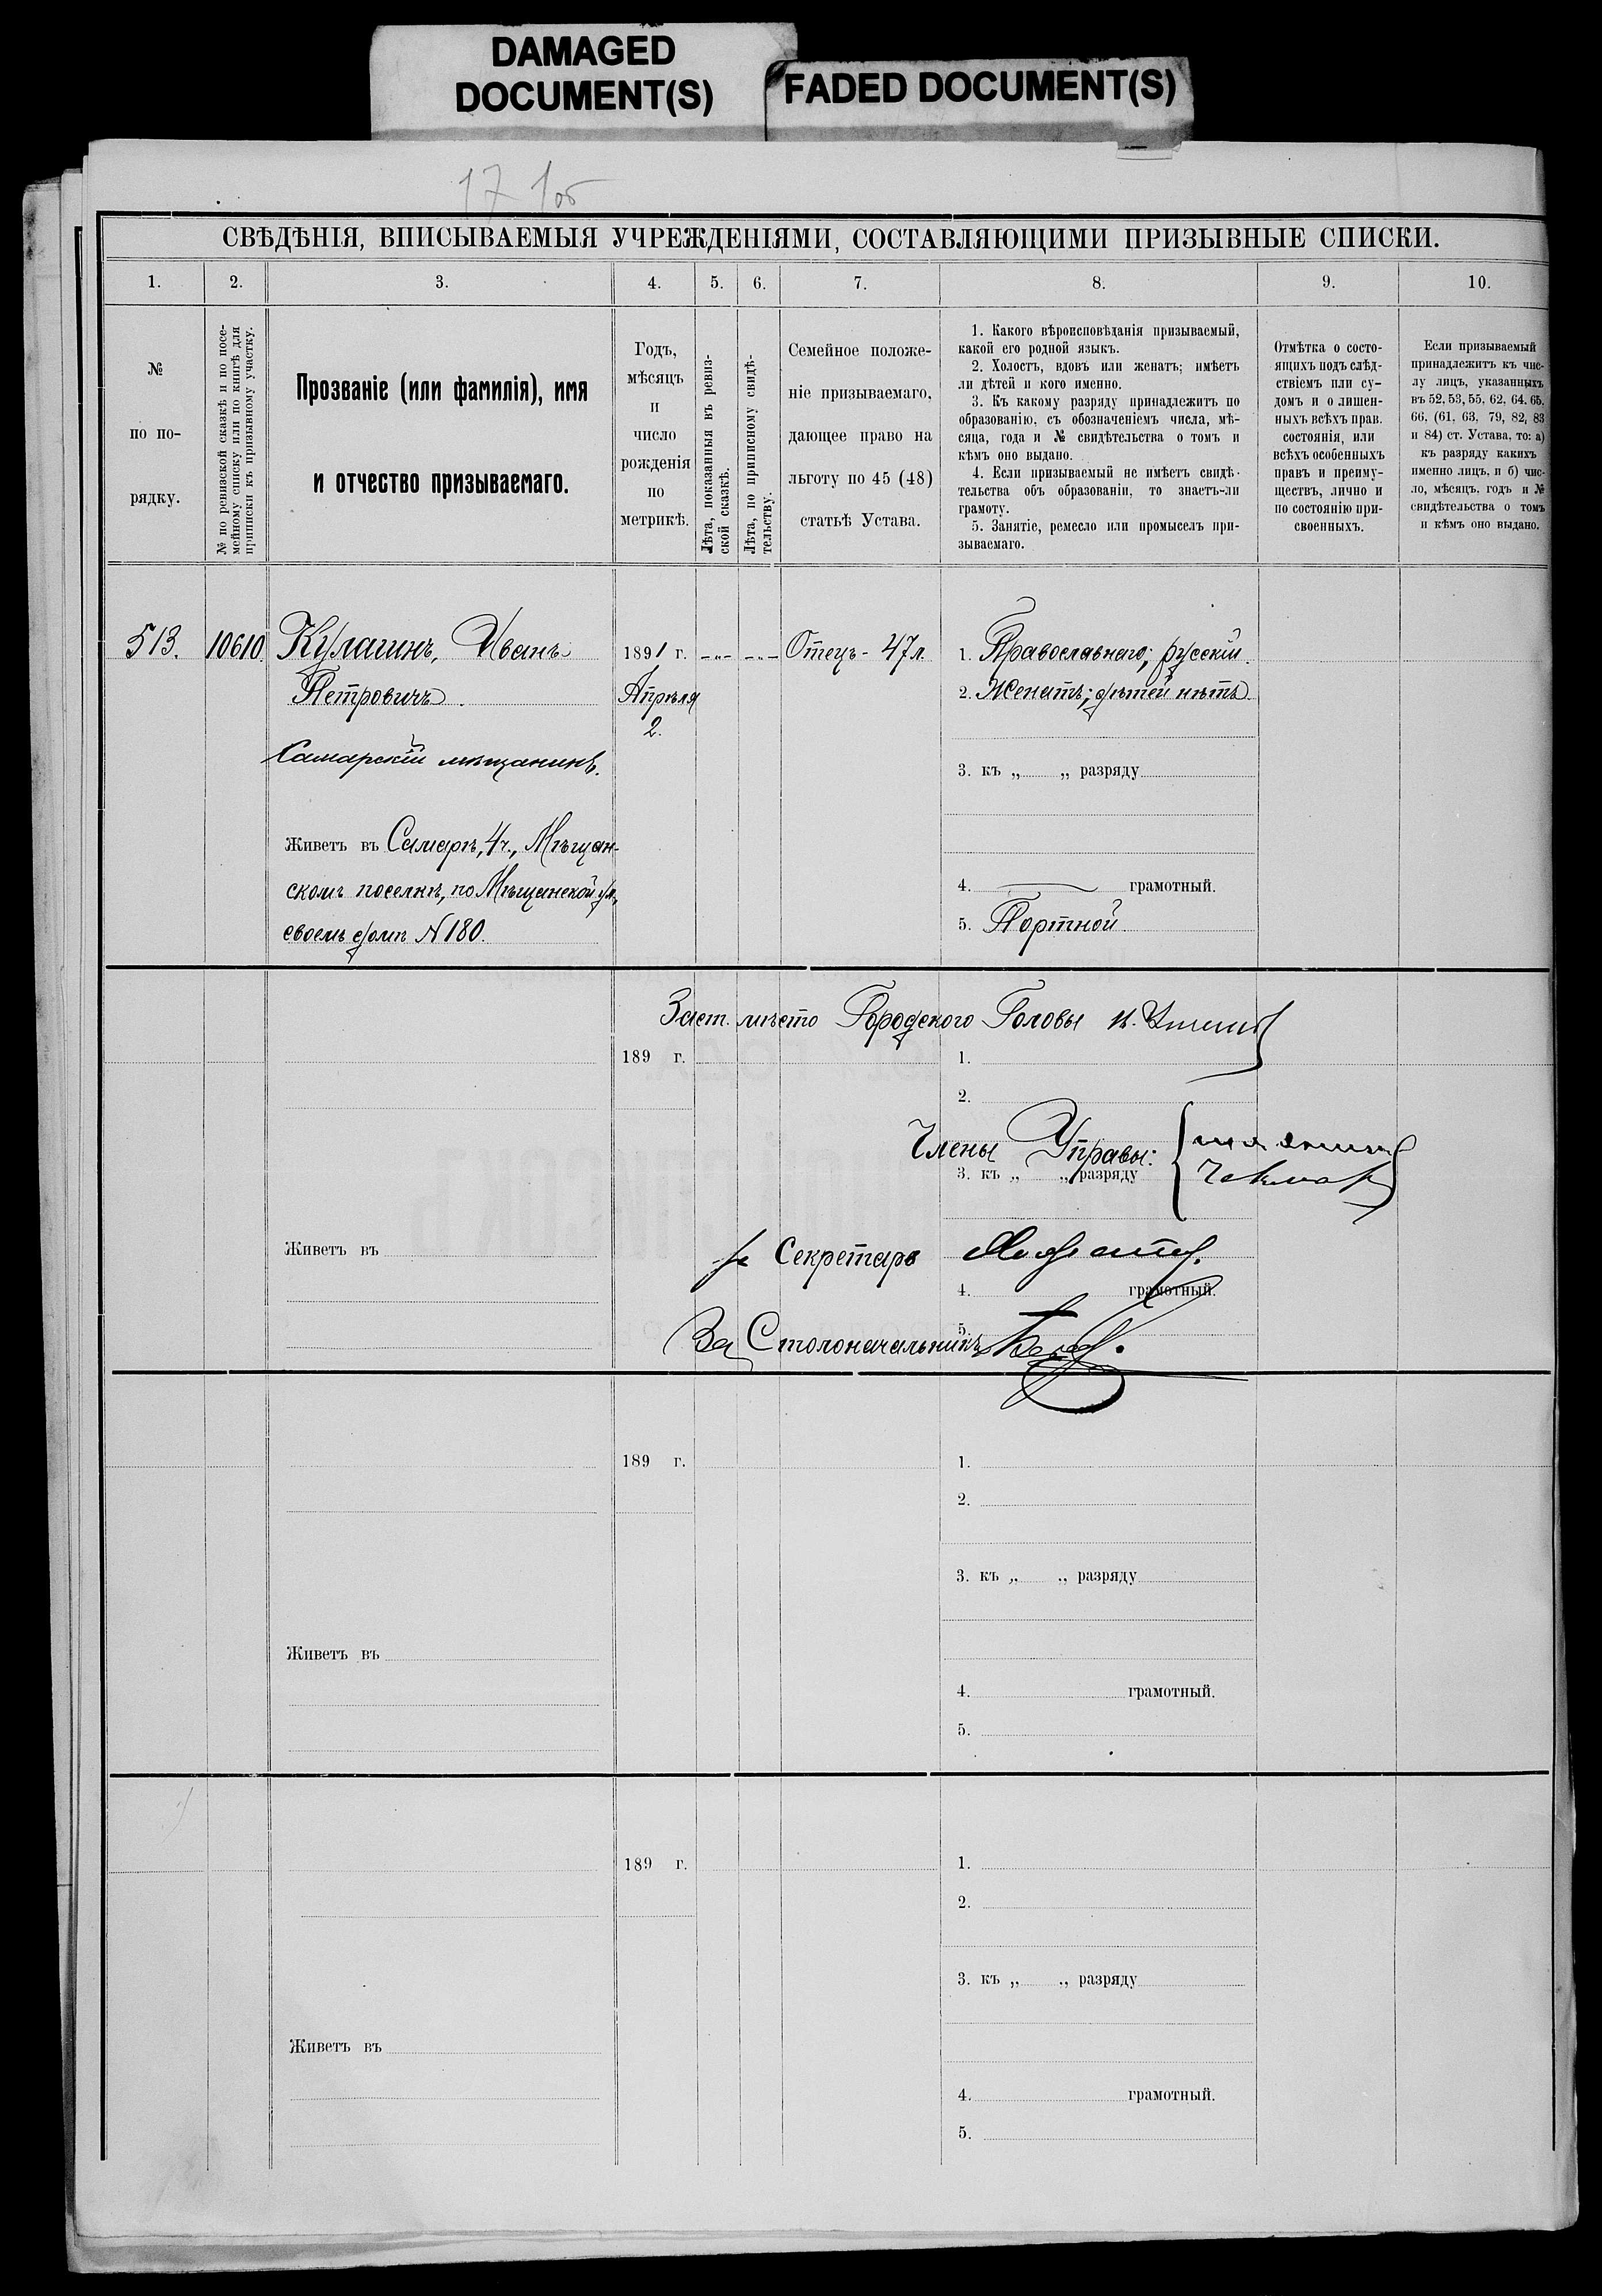 DAMAGED
DOCUMENT(S)
FADED DOCUMENT(S)
17 1об
СВѢДѢНІЯ, ВПИСЫВАЕМЫЯ УЧРЕЖДЕНІЯМИ, СОСТАВЛЯЮЩИМИ ПРИЗЫВНЫЕ СПИСКИ.
1. 2. 3. 4. 5. 6. 7. 8. 9. 10.
№
по по-
рядку.
№ по ревизской сказкѣ и по посе-
мейному списку или по книгѣ для
приписки къ призывному участку.
Прозваніе (или фамилія), имя
и отчество призываемаго.
Годъ,
мѣсяцъ
и
число
рожденія
по
метрикѣ.
Лѣта, показанныя въ ревиз-
ской сказкѣ.
Лѣта, по приписному свидѣ-
тельству.
Семейное положе-
ніе призываемаго,
дающее право на
льготу по 45 (48)
статьѣ Устава.
1. Какого вѣроисповѣданія призываемый,
какой его родной языкъ.
2. Холостъ, вдовъ или женатъ; имѣетъ
ли дѣтей и кого именно.
3. Къ какому разряду принадлежитъ по
образованію, съ обозначеніемъ числа, мѣ-
сяца, года и № свидѣтельства о томъ и
кѣмъ оно выдано.
4. Если призываемый не имѣетъ свидѣ-
тельства объ образованіи, то знаетъ-ли
грамоту.
5. Занятіе, ремесло или промыселъ при-
зываемаго.
Отмѣтка о состо-
ящихъ подъ слѣд-
ствіемъ или су-
домъ и о лишен-
ныхъ всѣхъ прав.
состоянія, или
всѣхъ особенныхъ
правъ и преиму-
ществъ, лично и
по состоянію при-
своенныхъ.
Если призываемый
принадлежитъ къ чис-
лу лицъ, указанныхъ
въ 52, 53, 55, 62, 64, 65,
66, (61, 63, 79, 82, 83
и 84) ст. Устава, то: а)
къ разряду какихъ
именно лицъ, и б) чис-
ло, мѣсяцъ, годъ и №
свидѣтельства о томъ
и кѣмъ оно выдано.
513. 10610. Кулагинъ, Иванъ 1891 г. -„- -„- Отецъ - 47 л. 1. Православнаго; русскій.
Петровичъ. Апрѣля 2. Женатъ; дѣтей нѣтъ.
2.
Самарскій мѣщанинъ.
3. къ „ „ разряду
Живетъ въ Самарѣ, 4 ч., Мѣщан-
скомъ поселкѣ, по Мѣщанской ул., 4. грамотный.
своемъ домѣ N 180. 5. Портной
Заст. мѣсто Городского Головы
189 г. 1.
2.
Члены Управы:
3. къ „ „ разряду
Живетъ въ Секретарь
4. грамотный.
5.
За Столоначальника
189 г. 1.
2.
3. къ „ „ разряду
Живетъ въ
4. грамотный.
5.
189 г. 1.
2.
3. къ „ „ разряду
Живетъ въ
4. грамотный.
5.